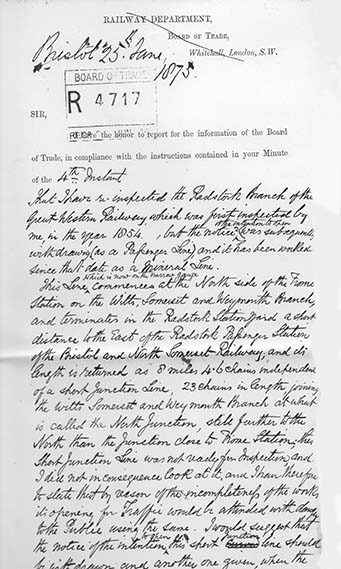 RAILWAY DEPARTMENT,
BOARD OF TRADE,
Whitehall, London, S.W.
Bristol 25th June,
1875.
BOARD OF TRADE
R 4717
SIR,
I have the honor to report for the information of the Board
of Trade, in compliance with the instructions contained in your Minute
of the 4th Instant
that I have re-inspected the Radstock Branch of the
Great Western Railway, which was first inspected by
me, in the year 1854, but the notice of the intention to open was subsequently
withdrawn (as a Passenger Line) and it has been worked
since that date as a Mineral Line.
This Line, which is now on the narrow gauge commences at the North side of the Frome
Station on the Wilts, Somerset and Weymouth Branch,
and terminates in the Radstock Station Yard a short
distance to the East of the Radstock Passenger Station
of the Bristol and North Somerset Railway, and its
length is returned as 8 miles 46 chains independent
of a short Junction Line, 23 chains in length, joining
the Wilts Somerset and Weymouth Branch at what
is called the North Junction, still further to the
North than the Junction close to Frome Station, this
Short Junction Line was not ready for Inspection and
I did not in consequence look at it, and I have therefore
to state that by reason of the incompleteness of the works,
its opening for Traffic would be attended with danger
to the Public using the same. I would suggest that
the notice of the intention to open this short junction line should
be withdrawn and another one given, when the